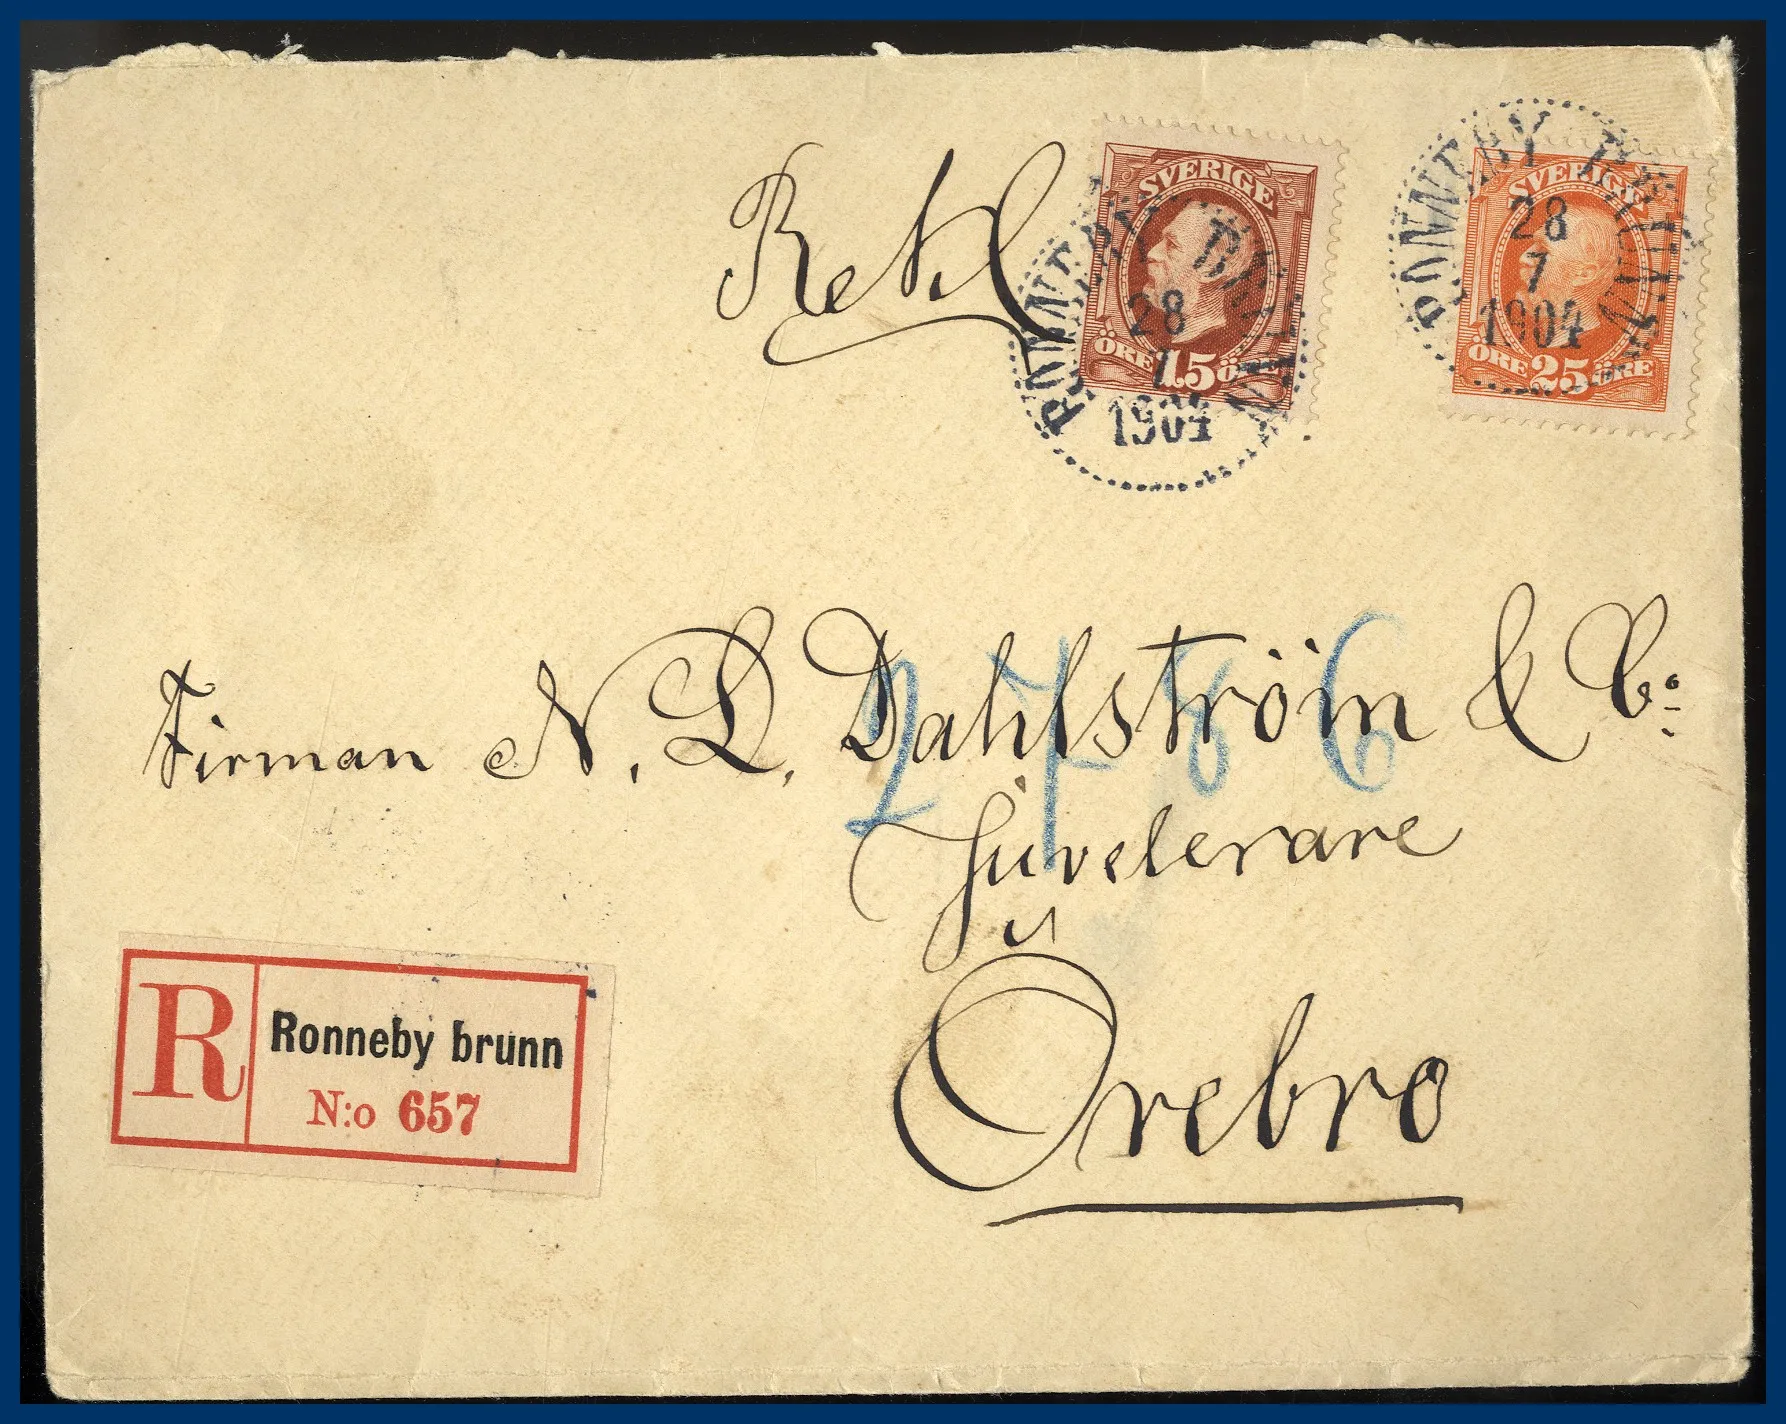 Rek
SVERIGE
ÖRE 15 ÖRE
RONNEBY BRUNN
28
7
1904
SVERIGE
ÖRE 25 ÖRE
RONNEBY BRUNN
28
7
1904
Firman N. L. Dahlström & Co.
Juvelerare
Örebro
R
Ronneby brunn
N:o 657